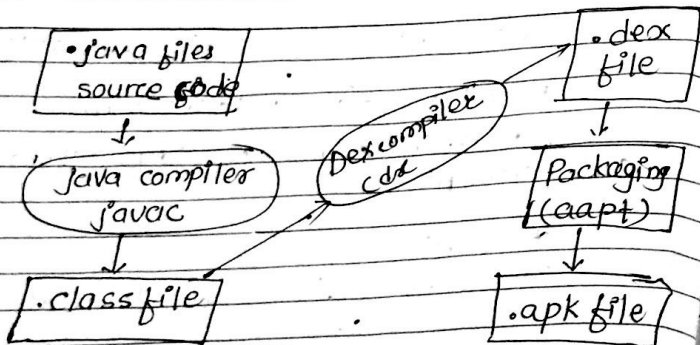 .java files
source code
java compiler
javac
.class file
Dex compiler
.dex
file
Packaging
(aapt)
.apk file